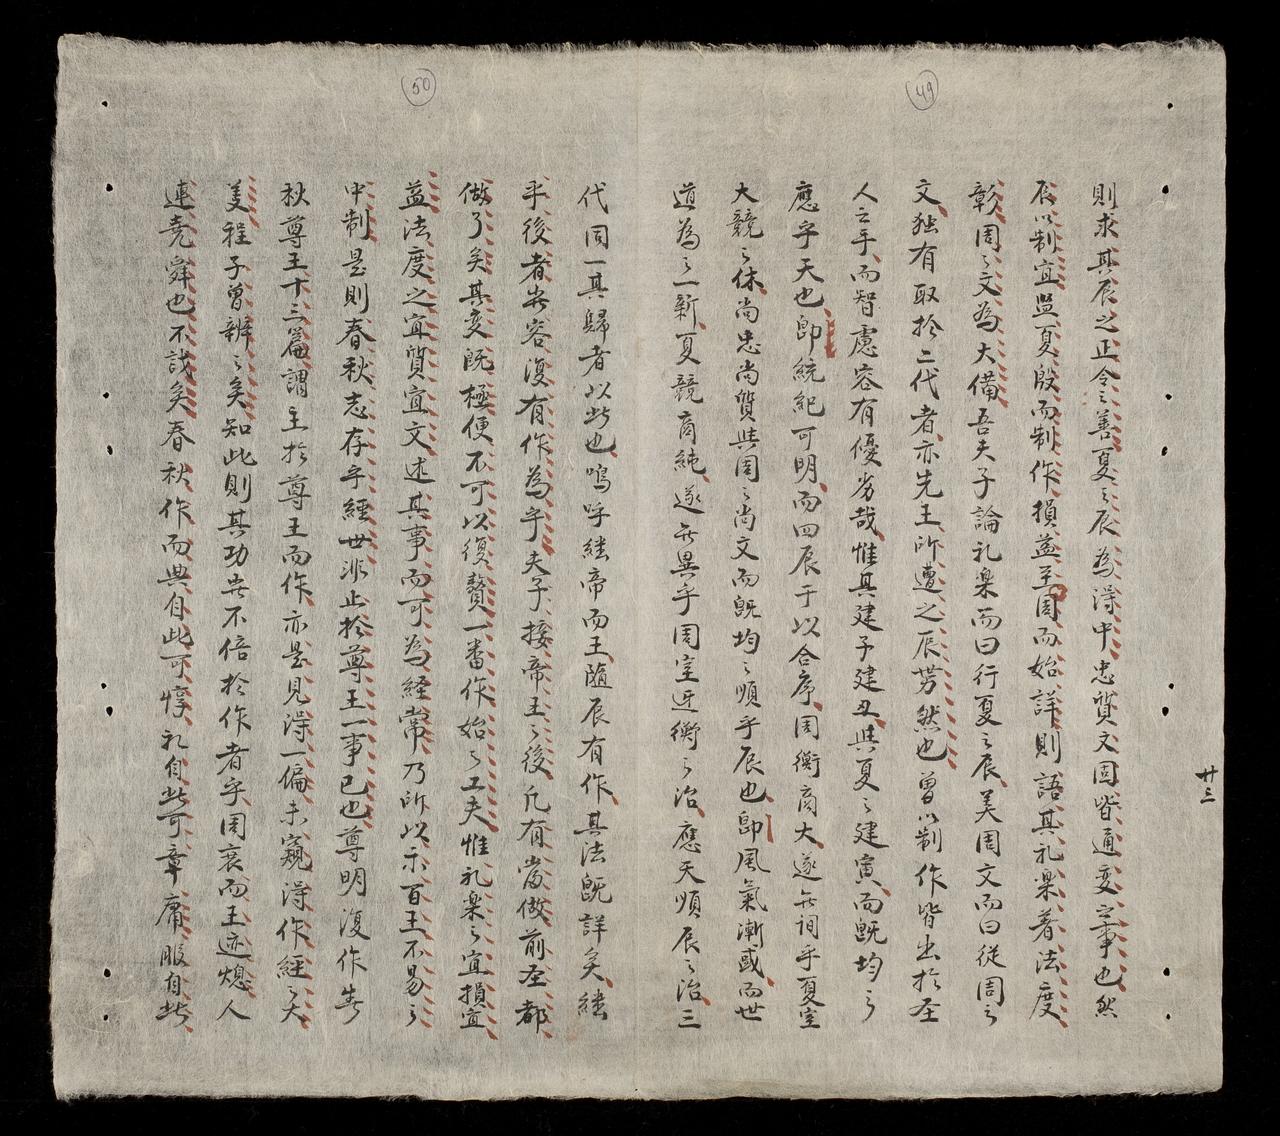 49
則求其辰之正令之善夏々辰為得中忠質文固皆通变之事也然
辰以制宜监夏殷而制作損益至周而始詳則語其礼楽著法度
彰周々文為大備吾夫子論礼楽而曰行夏々辰美周文而曰従周々
文独有取於二代者亦先王所遭之辰势然也曽以制作皆出於圣
人之手而智慮容有優劣哉惟其建子建丑與夏々建寅而既均々
應乎天也卽統紀可明而四辰于以合序周衡商大遂無詞乎夏室
大競々休尚忠尚質與周々尚文而既均々順乎辰也卽風氣漸或而世
道為々一新夏競商純遂無異乎周室迓衡々治應天順辰々治三
50
代同一其歸者以此也嗚呼継帝而王隨辰有作其法既詳矣継
乎後者岂容復有作為乎夫子接帝王々後凢有當做前圣都
做了矣其变既極便不可以復贅一番作始々工夫惟礼楽々宜損宜
益法度之宜質宜文述其事而可為経常乃所以示百王不易々
中制是則春秋志存乎經世非止於尊王一事已也尊明復作春
秋尊王十二篇謂主於尊王而作亦是見得一偏未窺得作經々大
美程子曾辨々矣知此則其功岂不倍於作者乎周衰而王迹熄人
連尭舜也不識矣春秋作而典自此可惇礼自此可章庸服自此
廿三